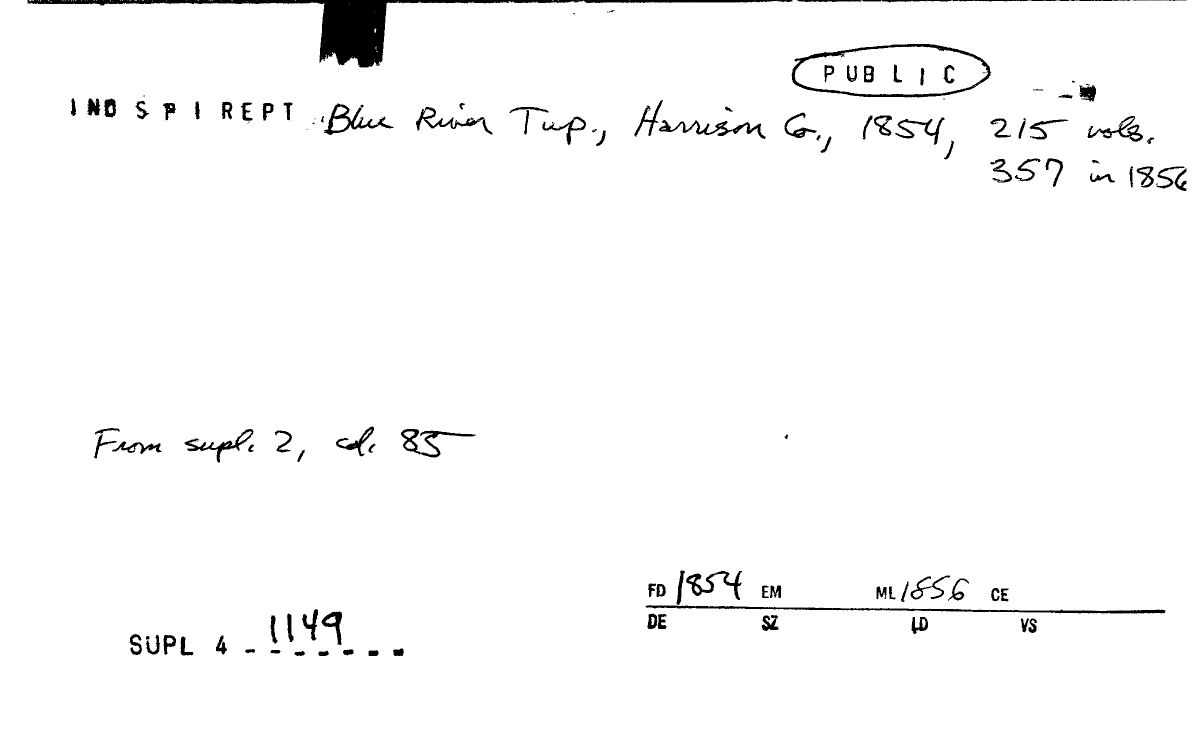 PUBLIC
IND SPI REPT Blue River Twp., Harrison Co., 1854, 215 vols.
357 in 1856
From supl. 2, cd. 85
FD 1854 EM ML 1856 CE
DE SZ LD VS
SUPL 4 - 1149